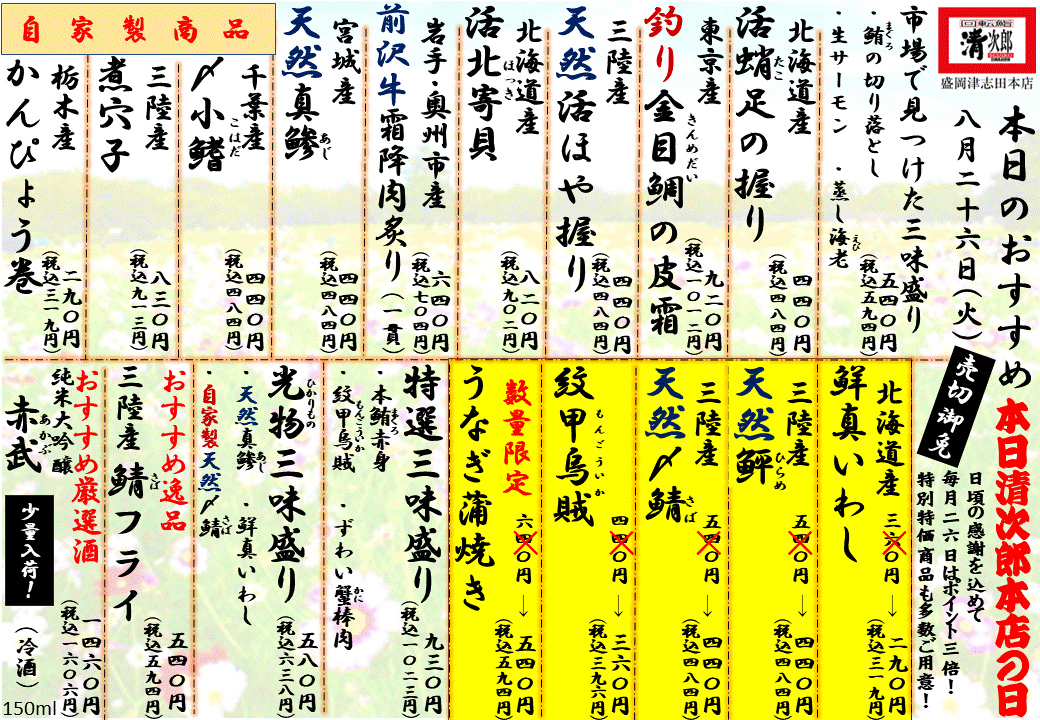 回転鮨
清次郎
盛岡津志田本店
本日のおすすめ
八月二十六日(火)
売切御免
市場で見つけた三味盛り
・鮪の切り落とし
まぐろ
・生サーモン ・蒸し海老
えび
五四〇円
(税込五九四円)
北海道産
活蛸足の握り
たこ
四四〇円
(税込四八四円)
東京産
釣り金目鯛の皮霜
きんめだい
九二〇円
(税込一〇一二円)
三陸産
天然活ほや握り
四四〇円
(税込四八四円)
北海道産
活北寄貝
ほっき
八二〇円
(税込九〇二円)
岩手・奥州市産
前沢牛霜降肉炙り(一貫)
六四〇円
(税込七〇四円)
宮城産
天然真鯵
あじ
四四〇円
(税込四八四円)
自家製商品
千葉産
〆小鰭
こはだ
四四〇円
(税込四八四円)
三陸産
煮穴子
八三〇円
(税込九一三円)
栃木産
かんぴょう巻
二九〇円
(税込三一九円)
本日清次郎本店の日
日頃の感謝を込めて
毎月二六日はポイント三倍!
特別特価商品も多数ご用意!
北海道産
鮮真いわし
三六〇円→二九〇円
(税込三一九円)
三陸産
天然鮃
ひらめ
五四〇円→四四〇円
(税込四八四円)
三陸産
天然〆鯖
さば
五四〇円→四四〇円
(税込四八四円)
紋甲烏賊
もんごういか
四四〇円→三六〇円
(税込三九六円)
数量限定
うなぎ蒲焼き
六四〇円→五四〇円
(税込五九四円)
特選三味盛り
・本鮪赤身
まぐろ
・紋甲烏賊 ・ずわい蟹棒肉
もんごういか
かに
九三〇円
(税込一〇二三円)
光物三味盛り
ひかりもの
・天然真鯵 ・鮮真いわし
あじ
・自家製天然〆鯖
さば
五八〇円
(税込六三八円)
おすすめ逸品
三陸産 鯖フライ
さば
五四〇円
(税込五九四円)
おすすめ厳選酒
純米大吟醸
赤武
あかぶ
少量入荷!
(冷酒)
一四六〇円
(税込一六〇六円)
150ml